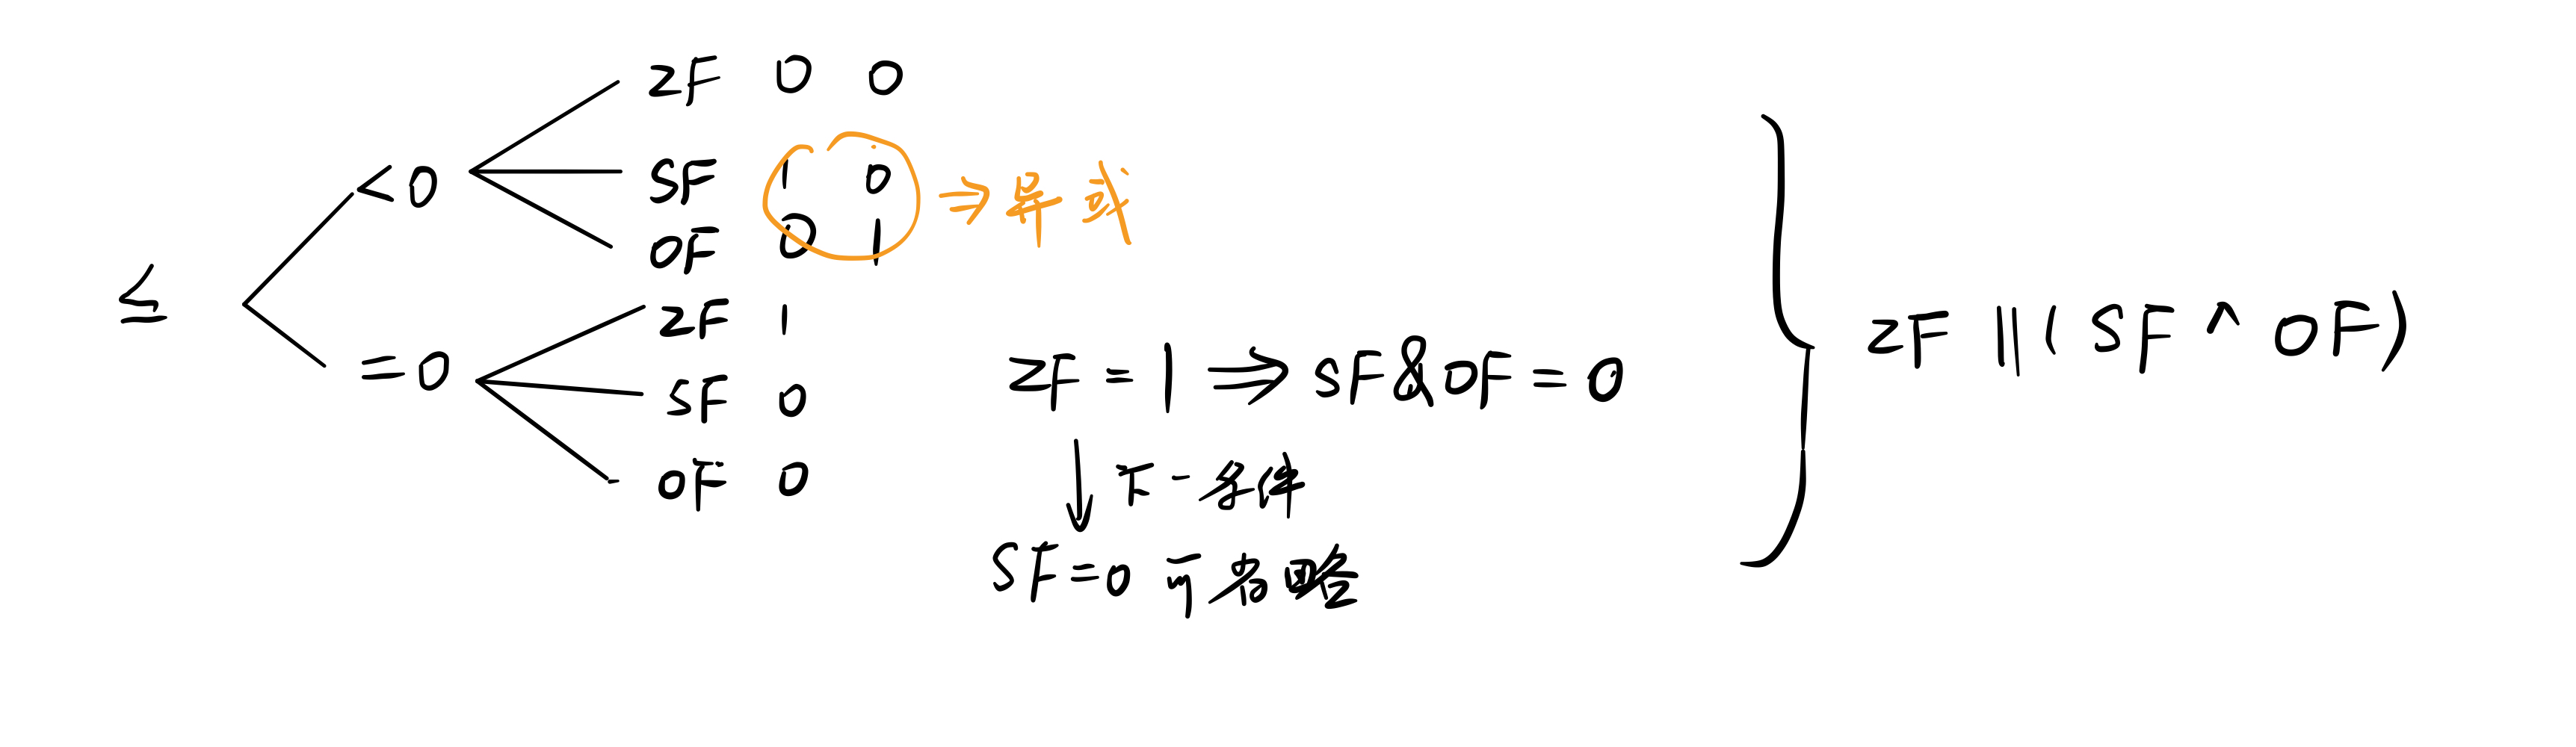 ≤
<0
ZF 0 0
SF 1 0
OF 0 1
⇒异或
=0
ZF 1
SF 0
OF 0
ZF=1⇒SF&OF=0
↓下-条件
SF=0可省略
ZF||(SF^OF)